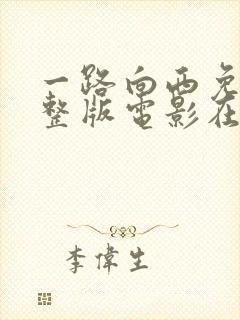 一路向西免
整版電影在
李偉生